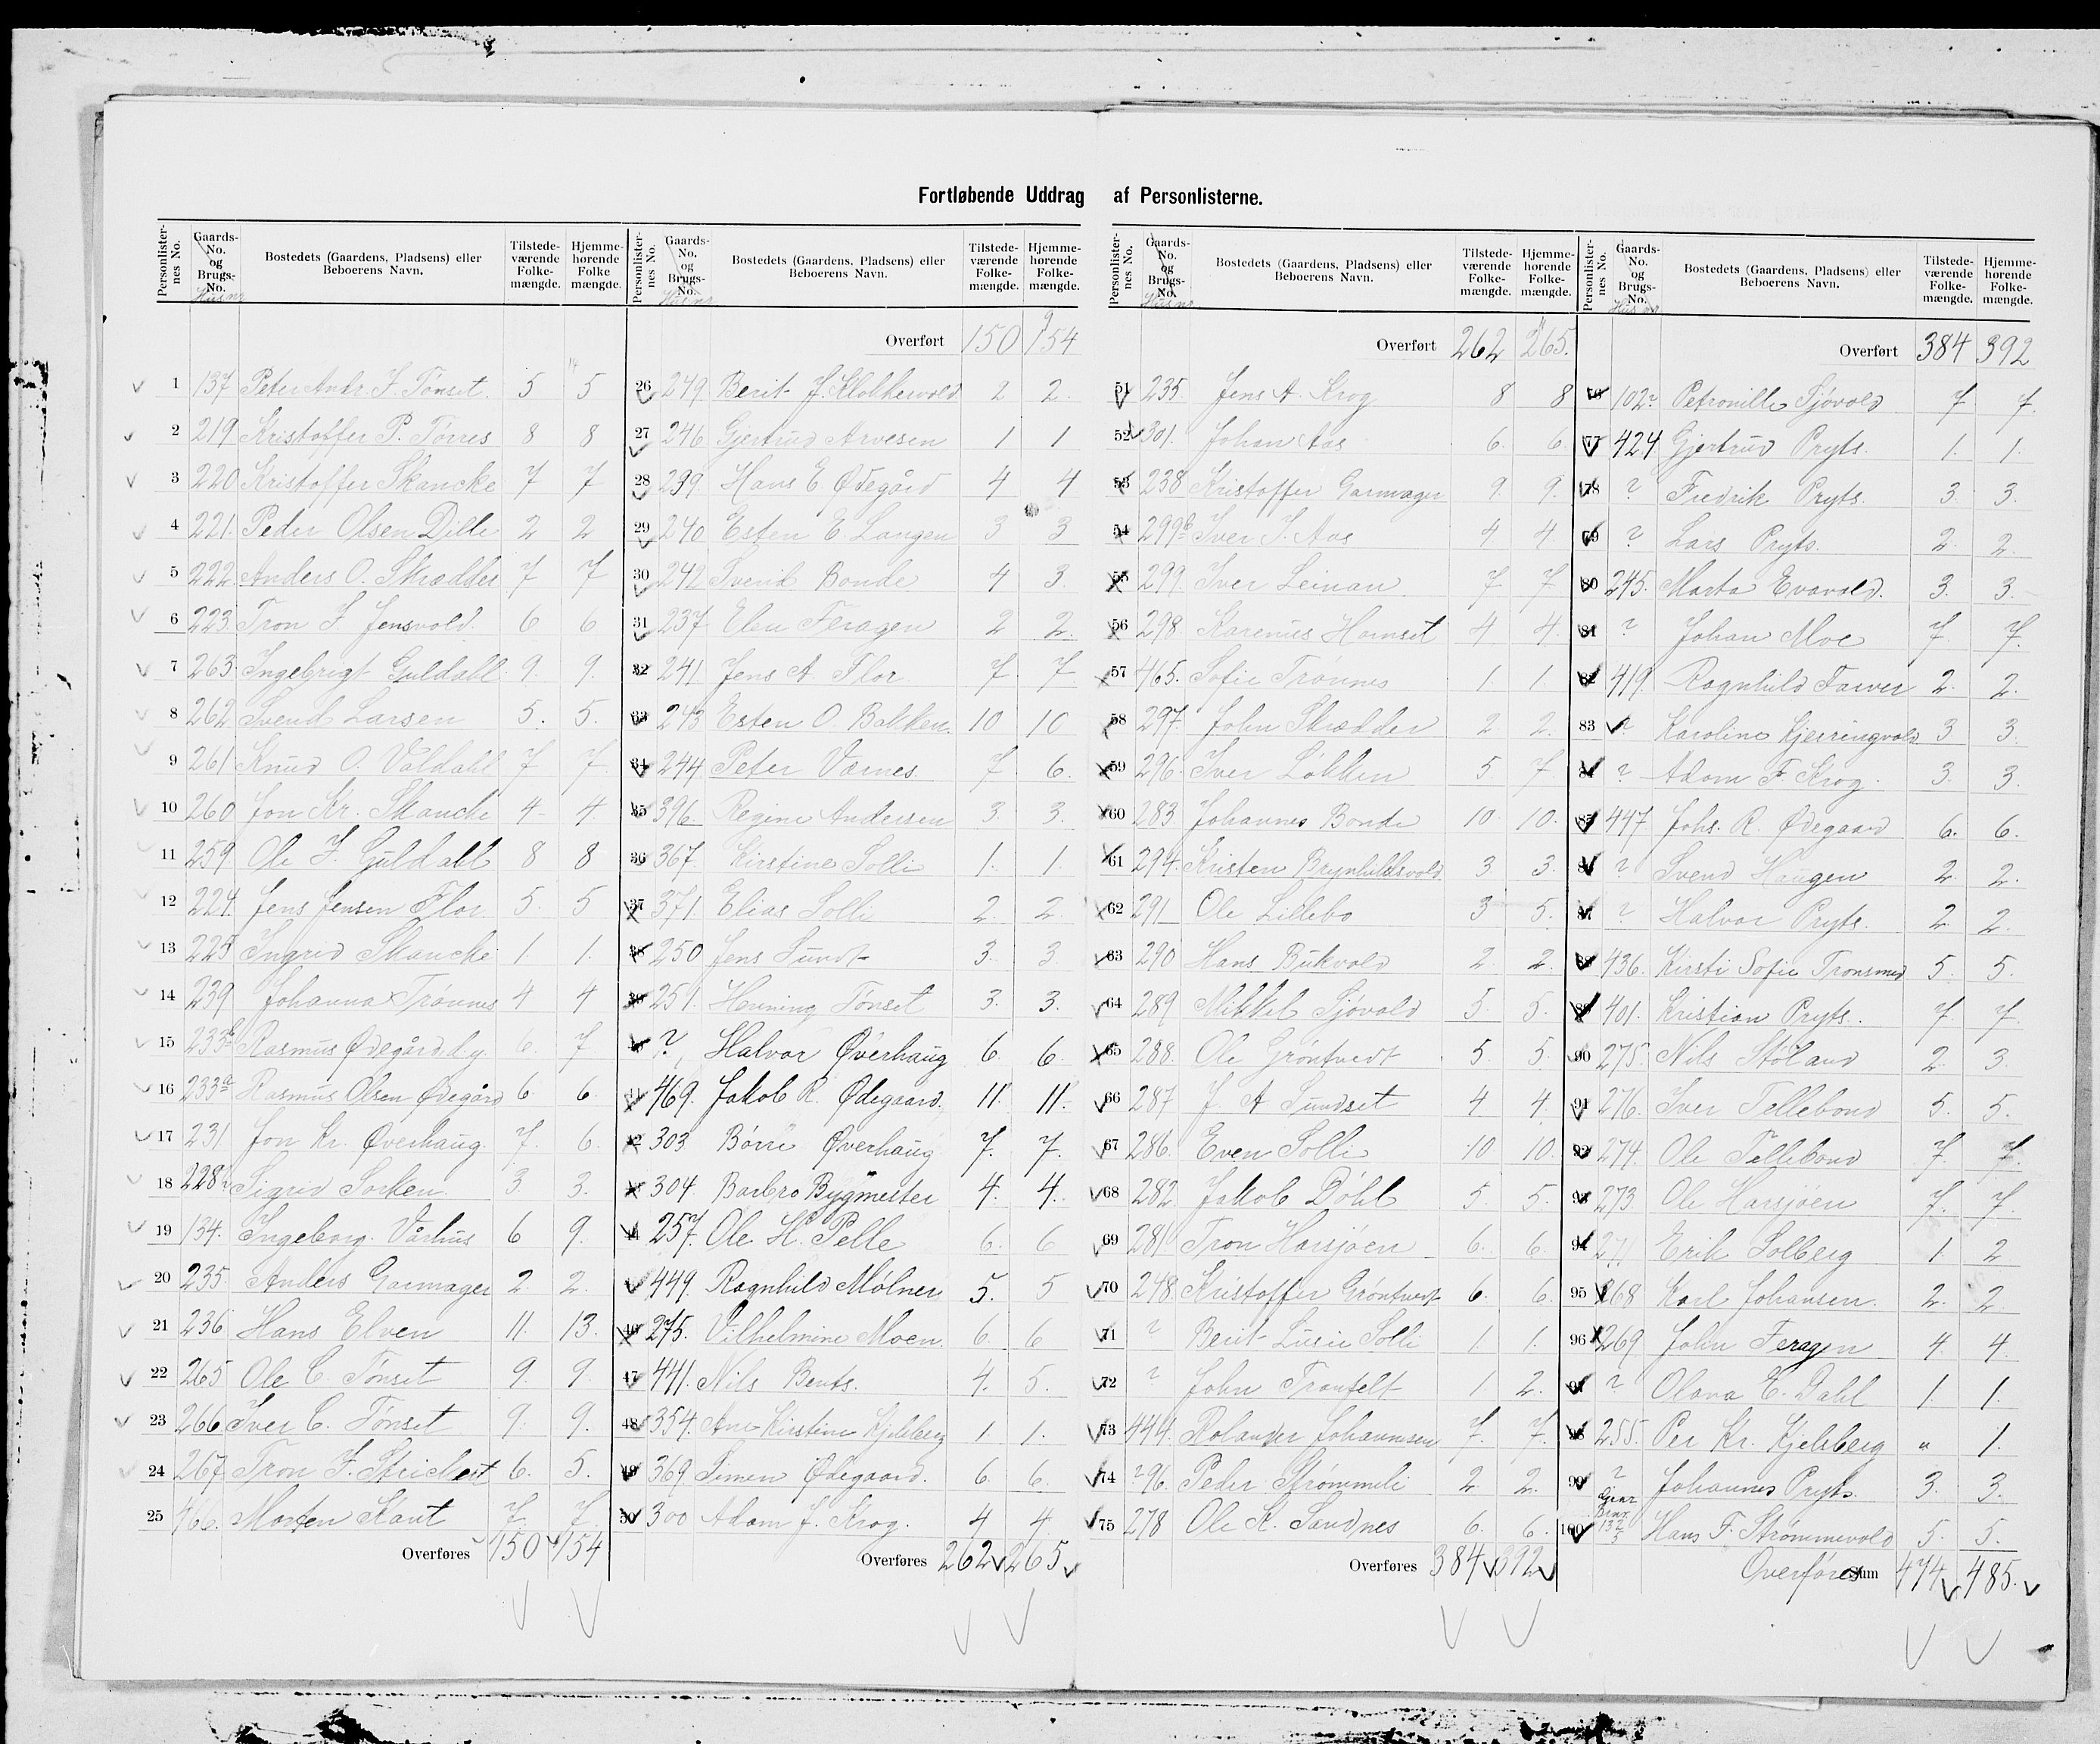 Fortløbende Uddrag af Personlisterne.
Personlister-nes No. Gaards-No. og Brugs-No. Husnr Bostedets (Gaardens, Pladsens) eller Beboerens Navn. Tilstede-værende Folke-mængde. Hjemme-hørende Folke mængde.
1 137 Peter Andr. J. Tønset. 5 5
2 219 Kristoffer P. Tørres 8 8
3 220 Kristoffer Skancke 7 7
4 221. Peder Olsen Dille 2 2
5 222. Anders O. Skrædder 7 7
6 223. Tron J. Jensvold. 6 6
7 263. Ingebrigt Guldahl 9. 9.
8 262 Svend Larsen 5. 5.
9 261 Knud O. Våldahl 7 7
10 260 Jon Kr. Skancke 4 4
11 259. Ole J. Guldahl 8 8
12 224. Jens Jensen Flor 5. 5
13 225 Ingrid Skancke 1. 1.
14 239 Johanna Trønnes 4 4
15 233b Rasmus Ødegård d.y. 6. 7
16 233a Rasmus Olsen Ødegård 6. 6.
17 231 Jon Kr. Øverhaug. 7. 6.
18 228 Sigrid Sorken 3. 3.
19 134. Ingeborg Vårhus 6 9.
20 235. Anders Garmager 2. 2.
21 236 Hans Elven 11. 13.
22 265 Ole C. Tønset 9. 9.
23 266 Iver C. Tønset 9. 9.
24 267 Tron J. Strickert 6. 5.
25 466. Morten Kant 7. 7.
Overføres 150 154
Personlister-nes No. Gaards-No. og Brugs-No. Husnr Bostedets (Gaardens, Pladsens) eller Beboerens Navn. Tilstede-værende Folke-mængde. Hjemme-hørende Folke-mængde.
Overført 150 154
26 249 Berit J. Klokkervold 2 2.
27 246 Gjertrud Arvesen 1 1
28 239 Hans E. Ødegård 4 4
29 240 Esten E. Langen 3 3
30 242 Svend Bonde 4 3.
31 237 Elen Feragen 2 2.
32 241 Jens A. Flor 7 7
33 243 Esten O. Bakken. 10 10
34 244 Peter Værnes. 7 6.
35 396 Regine Andersen 3. 3.
36 367 Kirstine Solli 1. 1.
37 371. Elias Solli 2. 2.
38 250 Jens Sundt 3. 3.
39 251. Henning Tønset 3. 3.
? Halvor Øverhaug 6. 6.
41 469. Jakob R. Ødegaard. 11. 11.
42 303 Børre Øverhaug 7. 7.
304 Barbro Bygmester 4. 4.
257. Ole H. Pelle 6. 6
449. Ragnhild Molner 5. 5
46 275. Vilhelmine Moen. 6. 6
47 441. Nils Bents. 4. 5.
48 354. Ane Kirstine Kjelsberg 1 1.
49 369 Simen Ødegaard. 6. 6.
50 300 Adam J. Krog. 4 4
Overføres 262 265
Personlister-nes No. Gaards-No. og Brugs-No. Husnr Bostedets (Gaardens, Pladsens) eller Beboerens Navn. Tilstede-værende Folke-mængde. Hjemme-hørende Folke-mængde.
Overført 262 265.
51 235. Jens A. Krog 8 8
52 301. Johan Aas 6. 6
53 238 Kristoffer Garmager 9. 9.
54 299b Iver J. Aas 4 4.
55 299. Iver Leinan 7 7
56 298. Karenus Hamset 4 4.
57 465. Sofie Trønnes 1. 1.
58 297. John Skrædder 2 2.
59 296. Iver Løkken 5. 7
60 283 Johannes Bonde 10. 10.
61 294. Kristen Brynhildsvold 3 3.
62 291 Ole Lillebo 3 5.
63 290 Hans Bukvold 2 2.
64 289 Mikkel Sjøvold 5. 5.
65 288. Ole Grøntvedt 5. 5.
66 287 J. A. Sundset 4 4.
67 286. Even Solli 10 10.
68 282 Jakob Døhl 5. 5.
69 281. Tron Harsjøen 6. 6.
70 248 Kristoffer Grøntvedt 6. 6.
71 ? Berit Lusie Solli 1. 1.
72 ? John Tronfelt 1. 2.
73 444. Rolander Johannsen 7. 7.
74 ?96. Peder Strømmeli 2. 2.
75 278 Ole K. Sandnes 6. 6.
Overføres 384 392
Personlister-nes No. Gaards-No. og Brugs-No. Hus nr Bostedets (Gaardens, Pladsens) eller Beboerens Navn. Tilstede-værende Folke-mængde. Hjemme-hørende Folke-mængde.
Overført 384 392
76 102? Petronille Sjøvold 7 7.
77 424 Gjertrud Pryts. 1. 1.
78 ? Fredrik Pryts. 3. 3.
79 ? Lars Pryts. 2. 2.
80 245. Marta Evavold. 3. 3.
81 ? Johan Moe 7. 7.
419. Ragnhild Farver 2. 2.
83 ? Karoline Kjerringvold 3 3.
84 ? Adam F. Krog. 3. 3.
85 447 Johs. R. Ødegaard 6. 6.
? Svend Haugen 2. 2.
? Halvor Pryts. 2. 2.
436. Kirsti Sofie Tronsmed 5. 5.
401. Kristian Pryts. 7. 7.
90 275. Nils Støland 2. 3.
91 276. Iver Tellebond 5. 5.
92 274. Ole Tellebond 7. 7.
273. Ole Harsjøen 7. 7.
94 271 Erik Solberg 1. 2
95 268 Karl Johansen. 2. 2
96 269 John Feragen 4. 4.
97 ? Olava E. Dahl 1. 1.
98 255. Per Kr. Kjelsberg " 1.
99 ? Johannes Pryts. 3. 3.
100 Gnr Bnr 132 5 Hans F. Strømmevold 5. 5.
Overføres Sum 474 485.